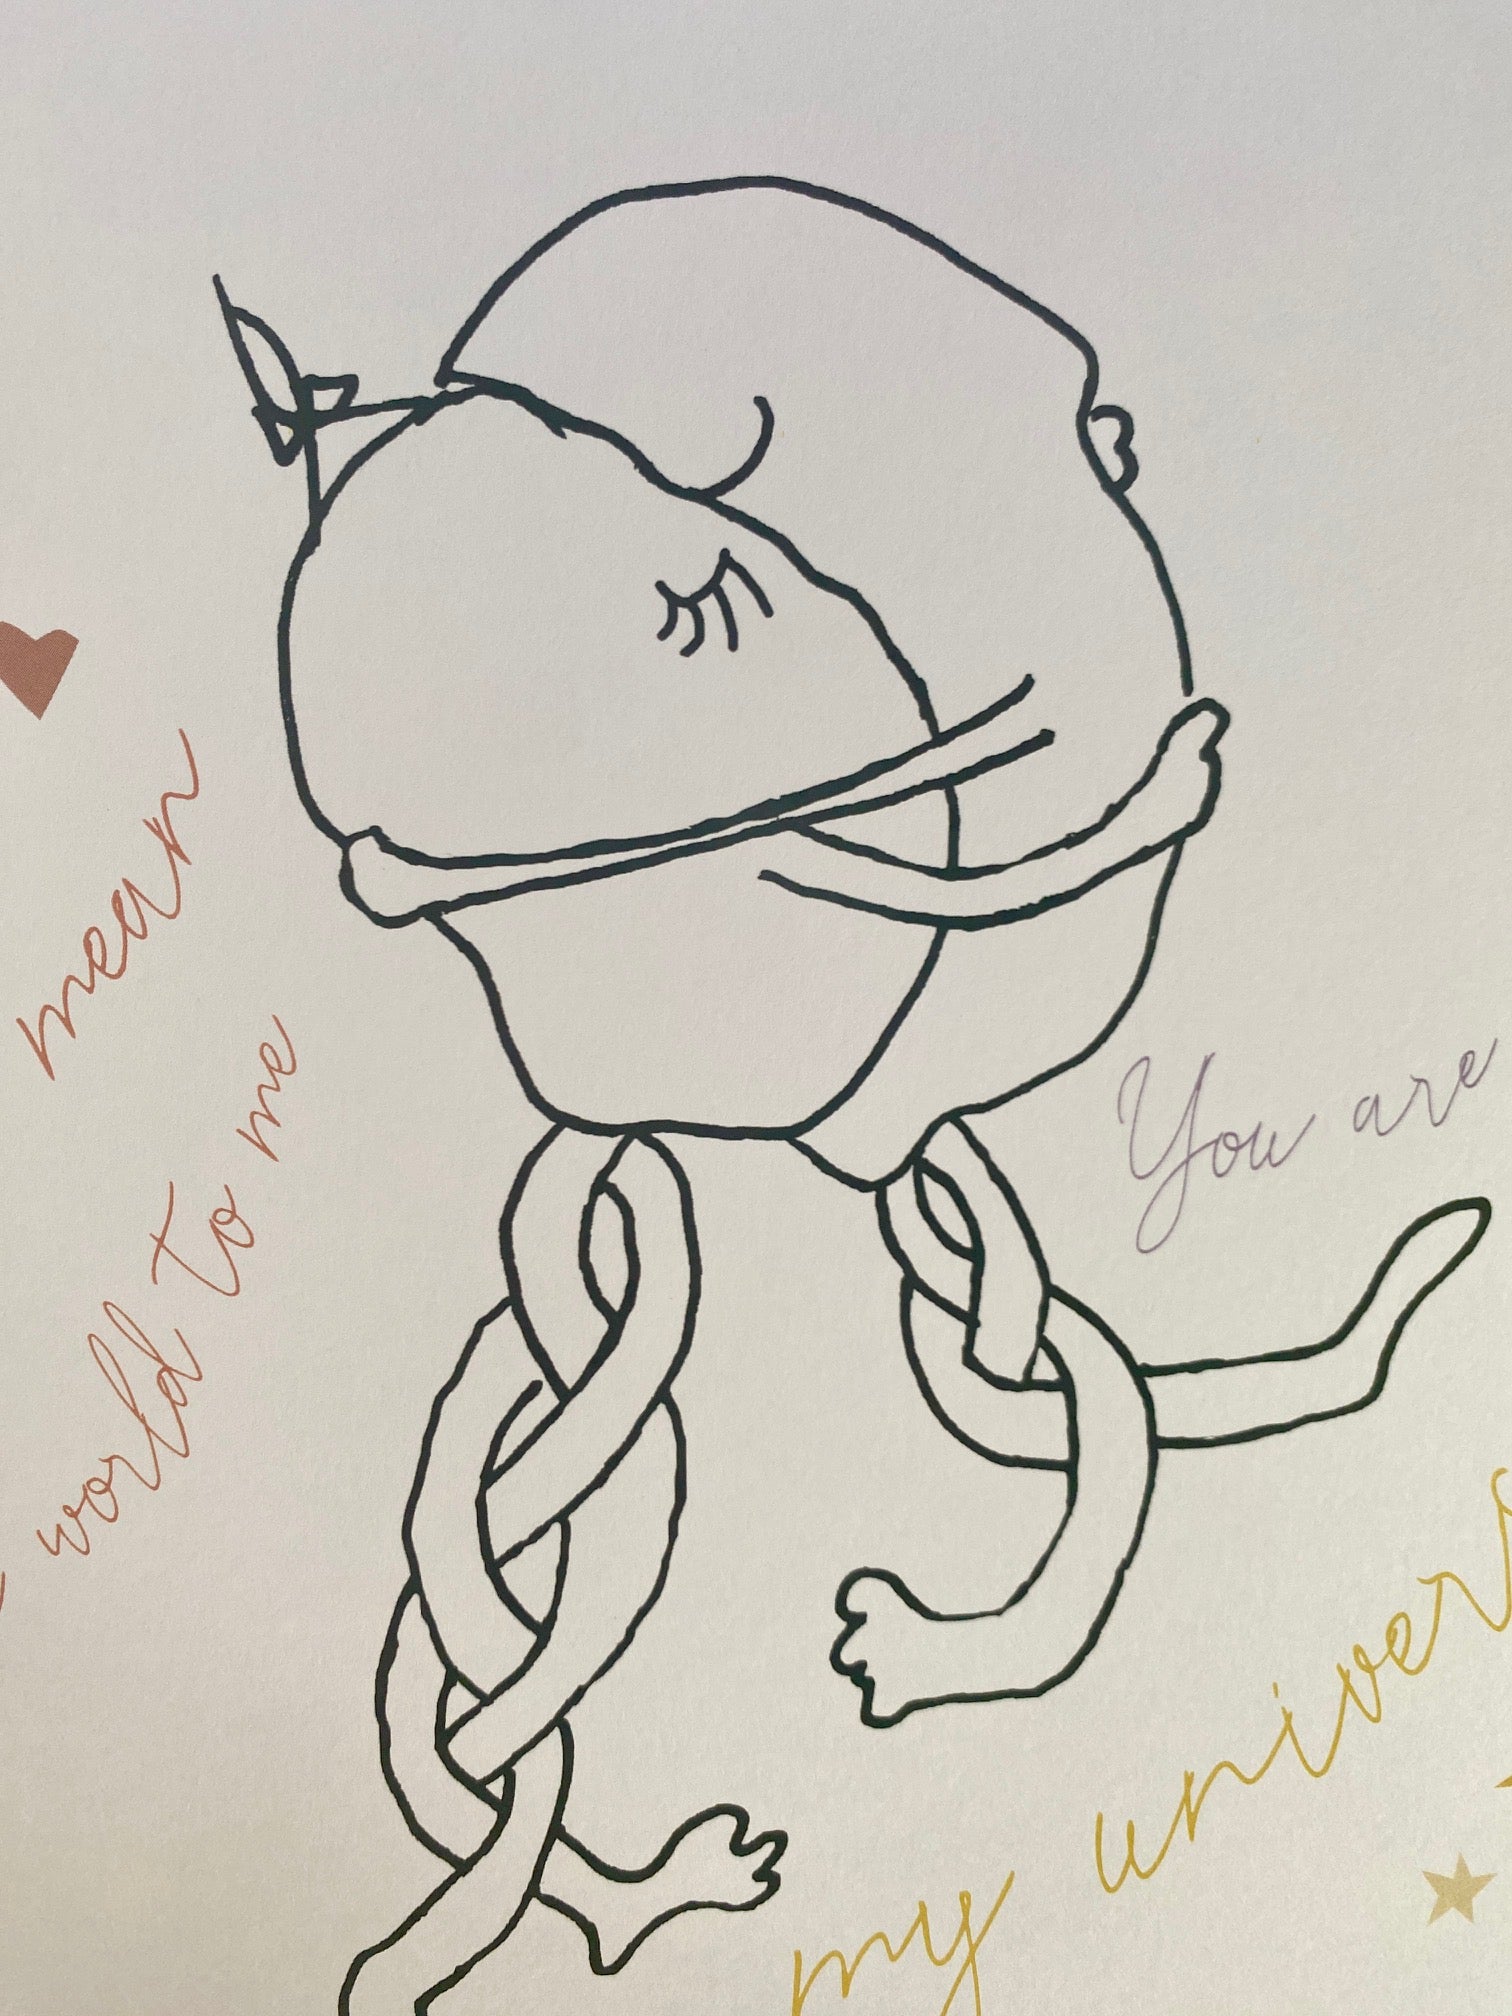 mean
world to me
You are
my univers